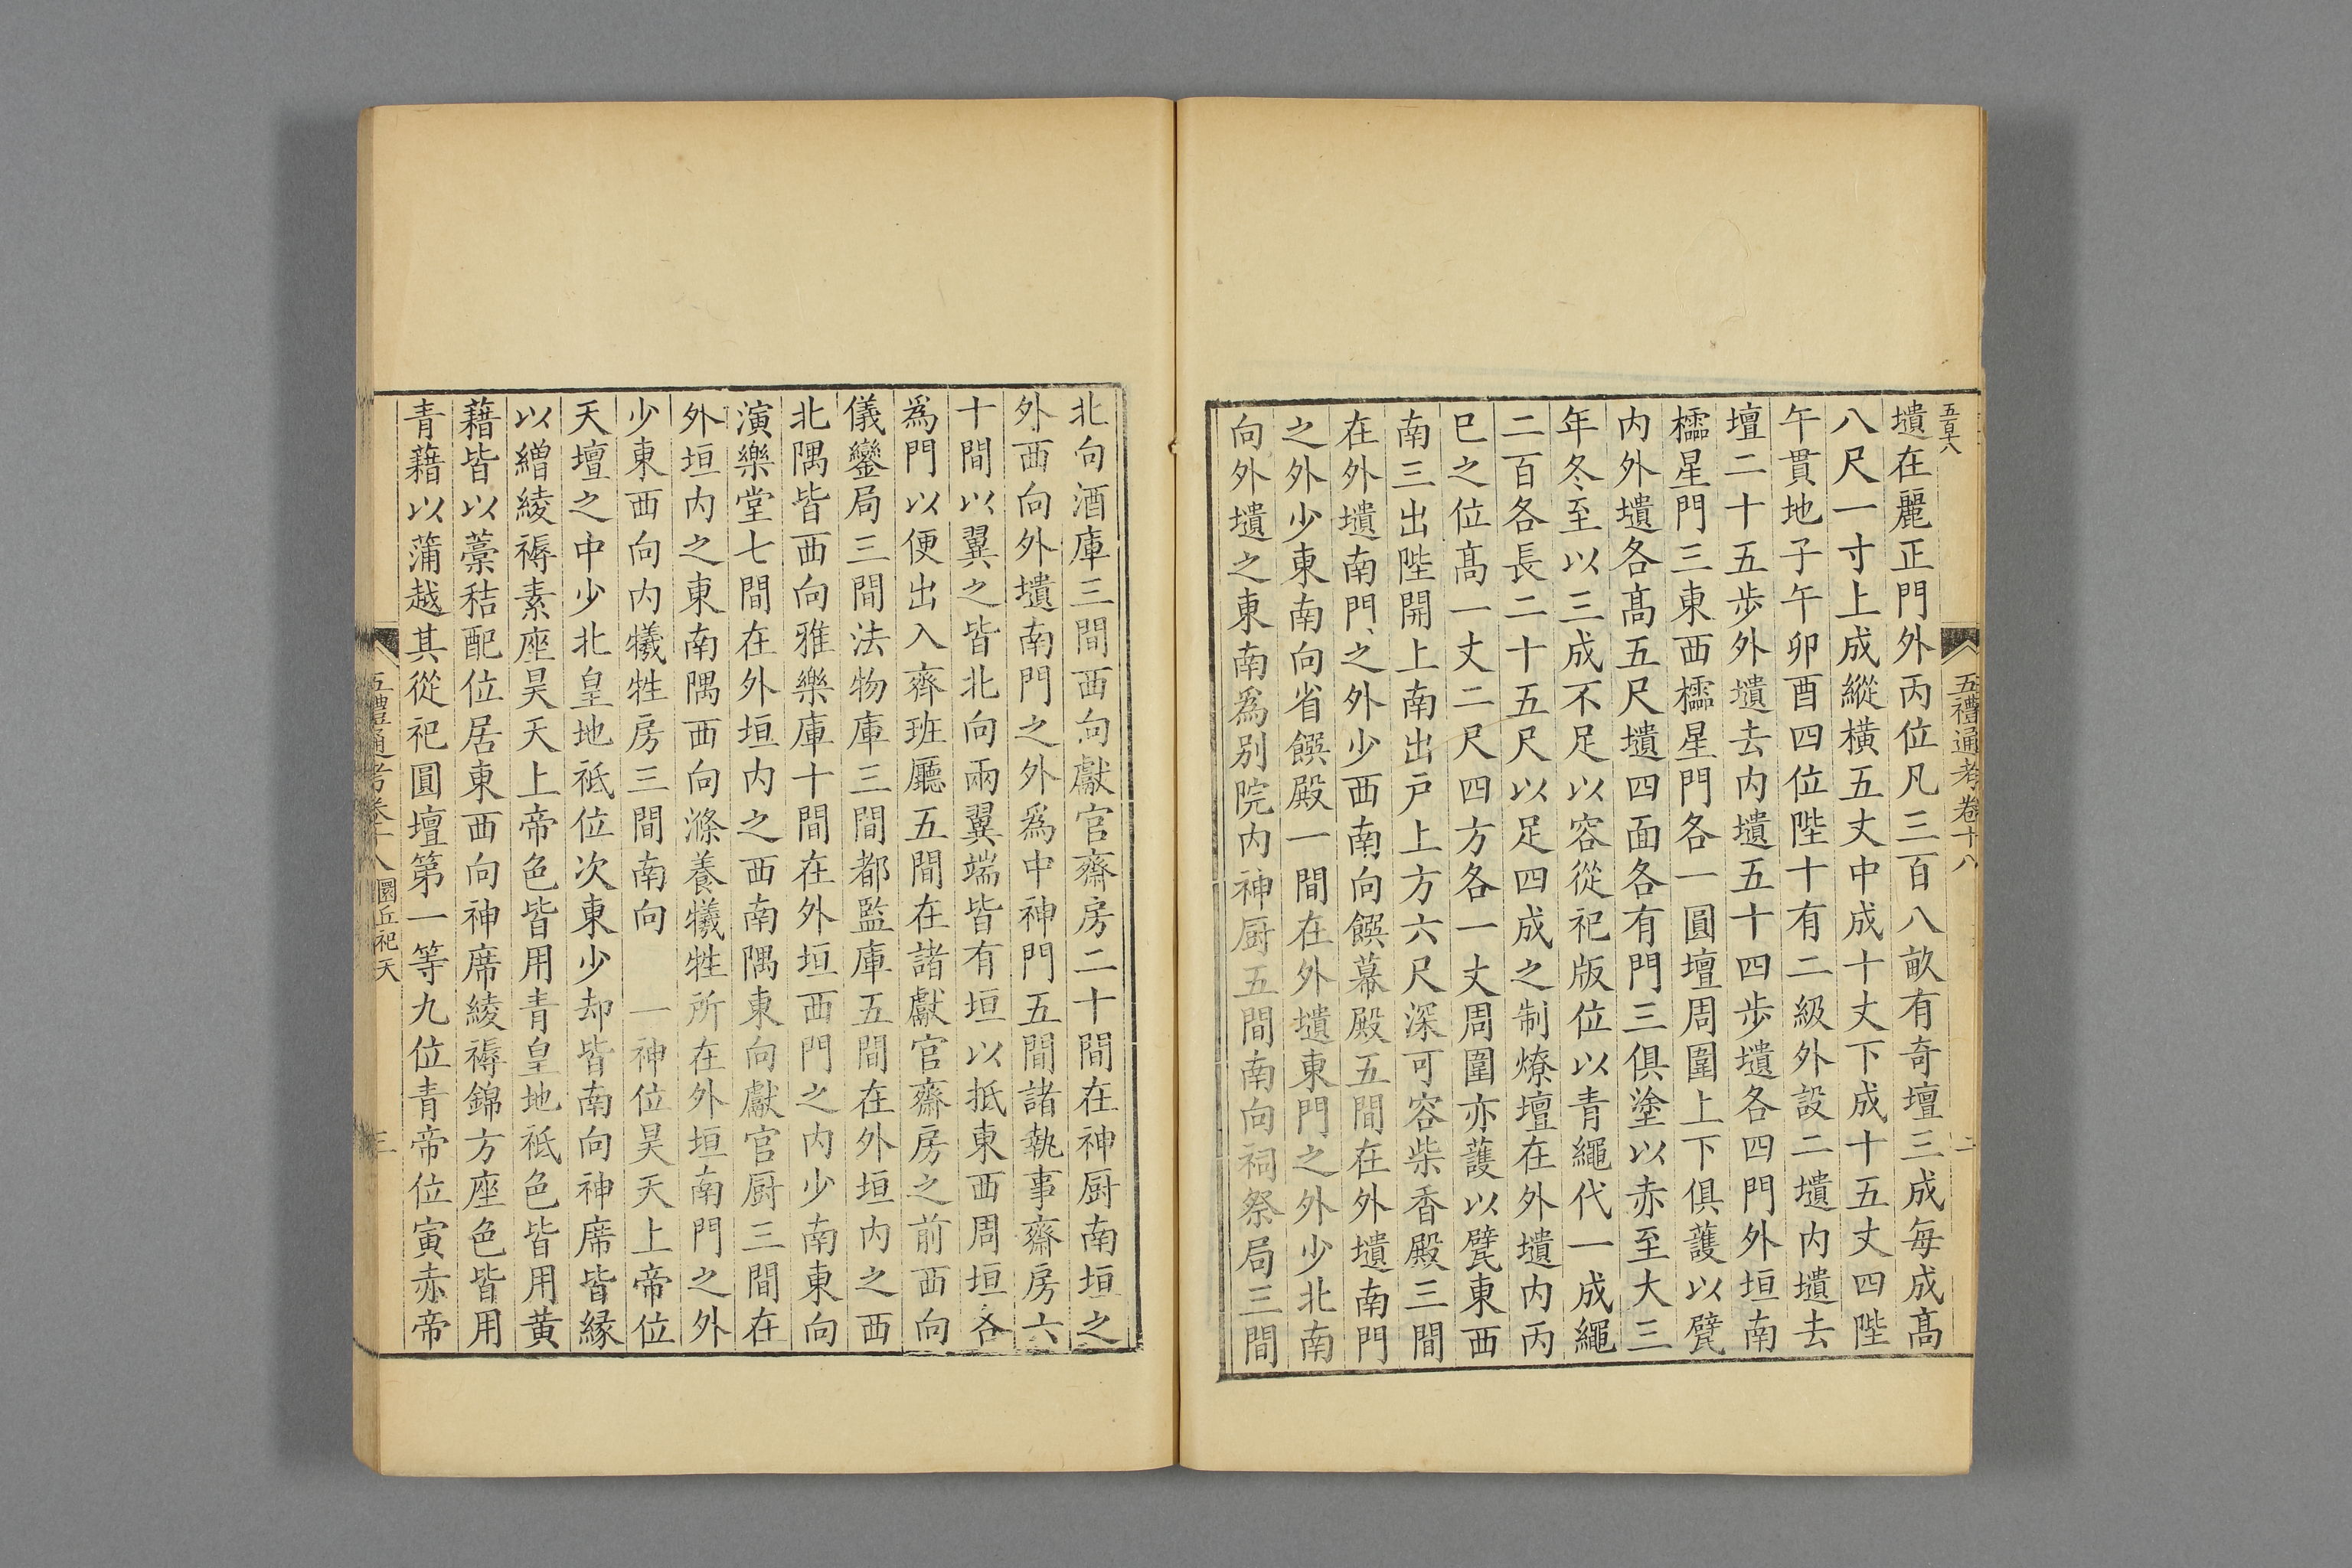 五百六
五禮通考卷十八
二
壝在麗正門外丙位凡三百八畝有奇壇三成每成髙
八尺一寸上成縱橫五丈中成十丈下成十五丈四陛
午貫地子午卯酉四位陛十有二級外設二壝内壝去
壇二十五步外壝去内壝五十四步壝各四門外垣南
櫺星門三東西櫺星門各一圓壇周圍上下俱護以甓
内外壝各髙五尺壝四面各有門三俱塗以赤至大三
年冬至以三成不足以容從祀版位以青繩代一成繩
二百各長二十五尺以足四成之制燎壇在外壝内丙
巳之位髙一丈二尺四方各一丈周圍亦護以甓東西
南三出陛開上南出户上方六尺深可容柴香殿三間
在外壝南門之外少西南向饌幕殿五間在外壝南門
之外少東南向省饌殿一間在外壝東門之外少北南
向外壝之東南爲别院内神厨五間南向祠祭局三間
北向酒庫三間西向獻官齋房二十間在神厨南垣之
外西向外壝南門之外爲中神門五間諸執事齋房六
十間以翼之皆北向兩翼端皆有垣以抵東西周垣各
爲門以便出入齊班廳五間在諸獻官齋房之前西向
儀鑾局三間法物庫三間都監庫五間在外垣内之西
北隅皆西向雅樂庫十間在外垣西門之内少南東向
演樂堂七間在外垣内之西南隅東向獻官厨三間在
外垣内之東南隅西向滌養犧牲所在外垣南門之外
少東西向内犧牲房三間南向　一神位昊天上帝位
天壇之中少北皇地祗位次東少却皆南向神席皆縁
以繒綾褥素座昊天上帝色皆用青皇地祗色皆用黄
藉皆以藁秸配位居東西向神席綾褥錦方座色皆用
青藉以蒲越其從祀圓壇第一等九位青帝位寅赤帝
五禮通考卷十八　圜丘祀天
三